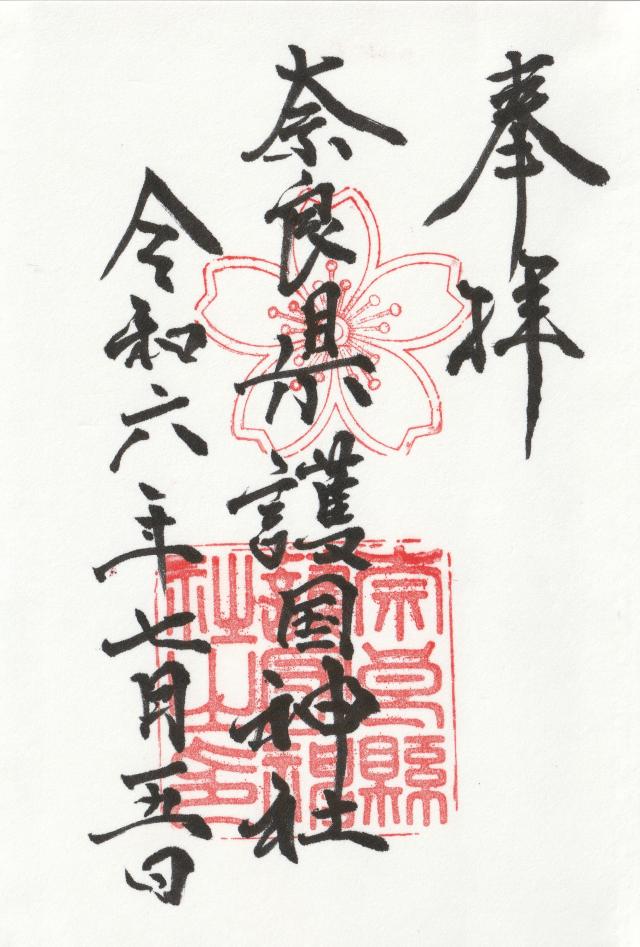 奉拝
奈良県護国神社
令和六年七月五日
奈良縣
護國神
社之印